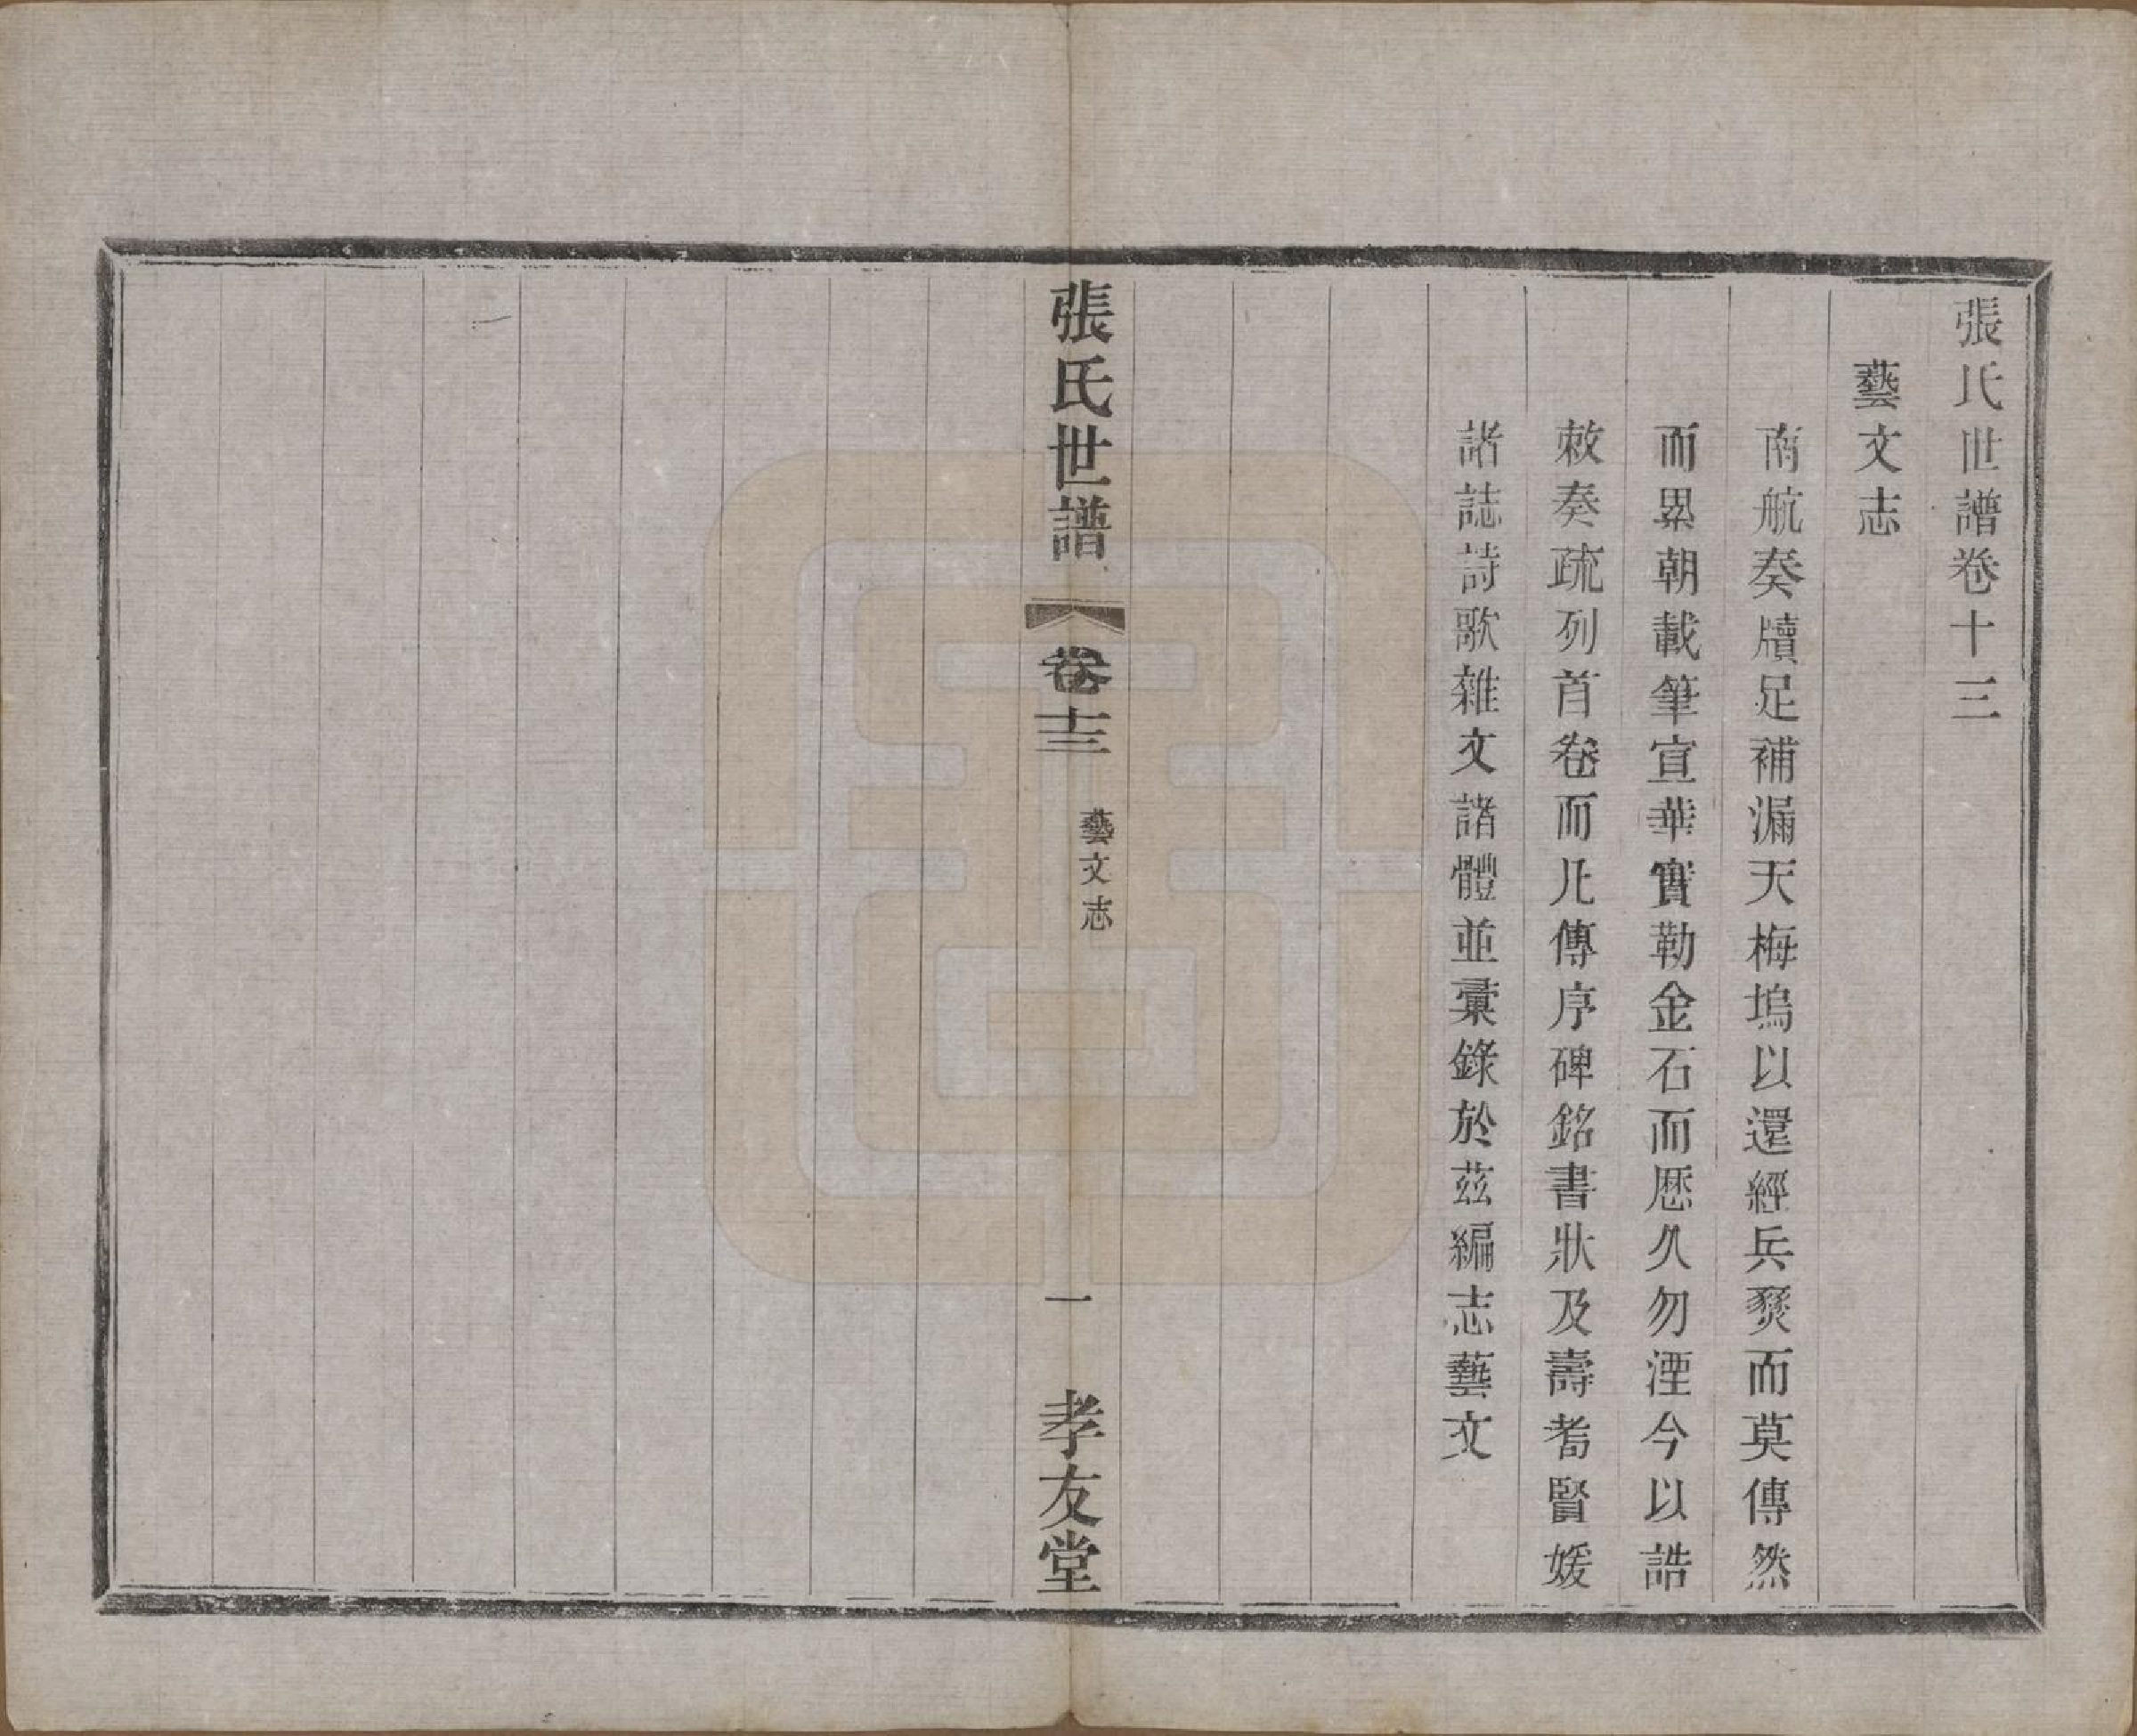 張氏世譜卷十三
藝文志
南航奏牘足補漏天梅塢以還經兵燹而莫傳然
而累朝載筆宣華實勒金石而歷久勿湮今以誥
敕奏疏列首卷而凡傳序碑銘書狀及壽耆賢媛
諸誌詩歌雜文諸體並彙錄於茲編志藝文
張氏世譜 卷十三 藝文志 一 孝友堂